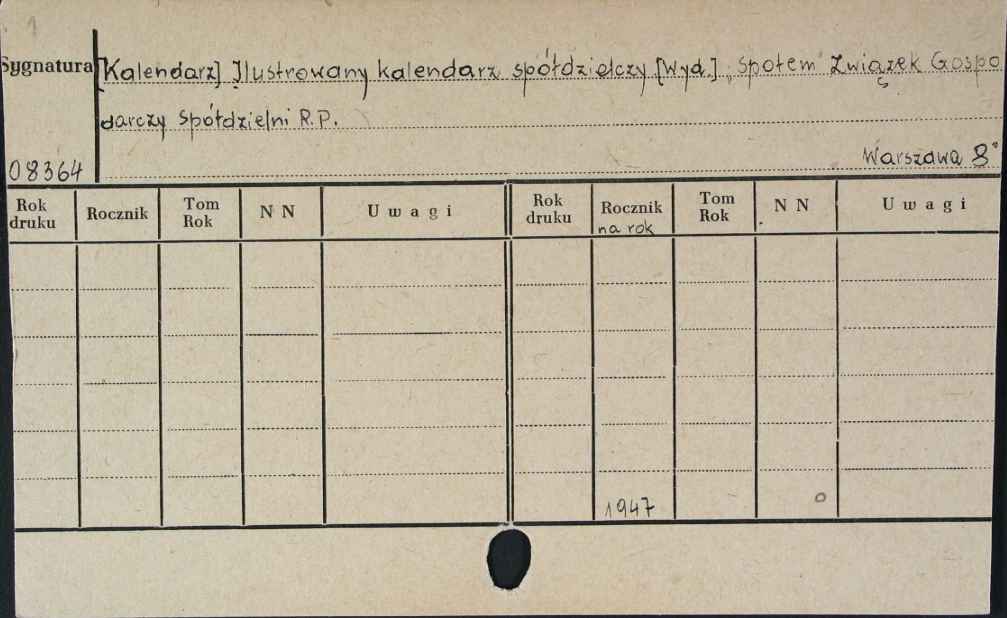 1
Sygnatura [Kalendarz] Ilustrowany kalendarz spółdzielczy [Wyd.] "Społem" Związek Gospo
darczy Spółdzielni R.P.
08364 Warszawa 8°
Rok druku Rocznik Tom Rok N N Uwagi Rok druku Rocznik na rok Tom Rok N N Uwagi
1947